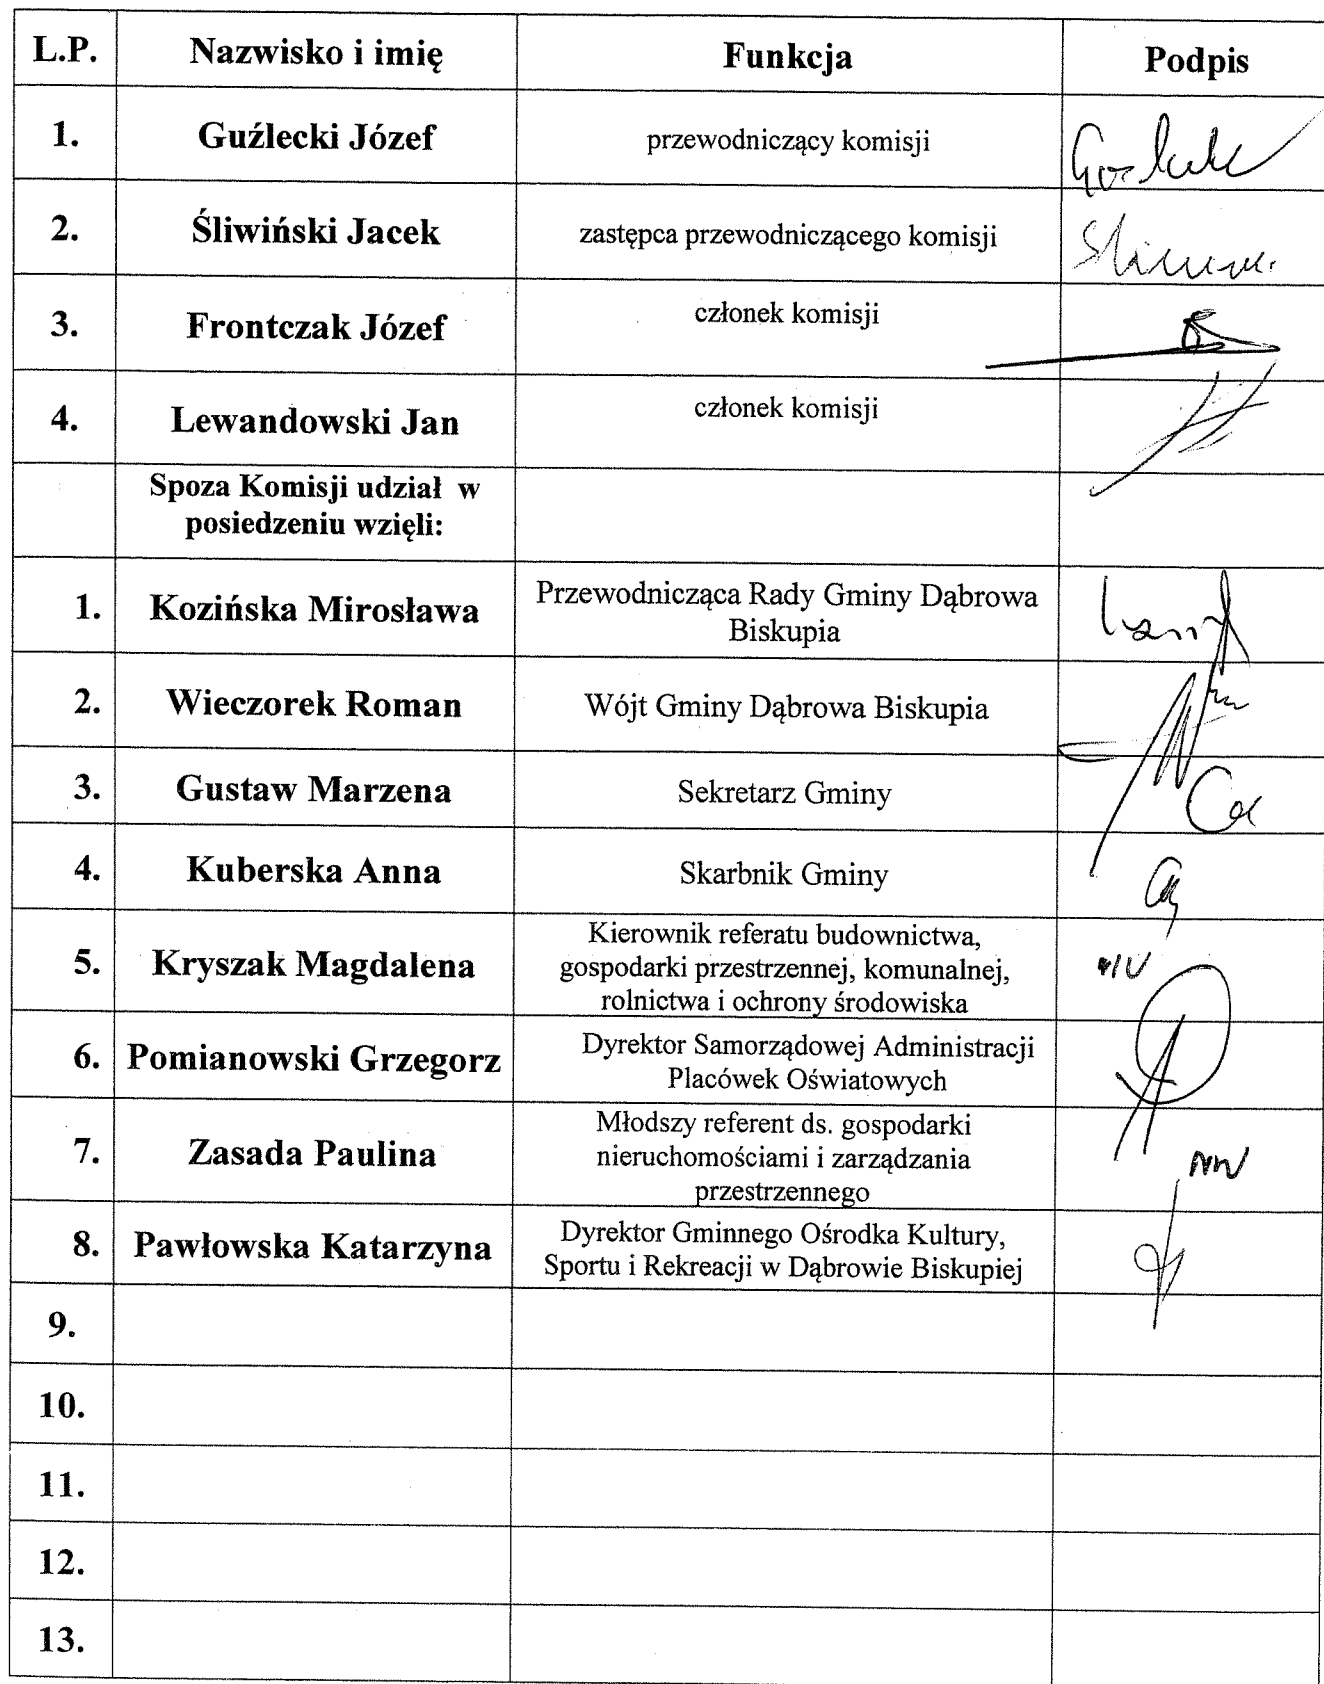 L.P. Nazwisko i imię Funkcja Podpis
1. Guźlecki Józef przewodniczący komisji
2. Śliwiński Jacek zastępca przewodniczącego komisji
3. Frontczak Józef członek komisji
4. Lewandowski Jan członek komisji
Spoza Komisji udział w
posiedzeniu wzięli:
1. Kozińska Mirosława Przewodnicząca Rady Gminy Dąbrowa
Biskupia
2. Wieczorek Roman Wójt Gminy Dąbrowa Biskupia
3. Gustaw Marzena Sekretarz Gminy
4. Kuberska Anna Skarbnik Gminy
Kierownik referatu budownictwa,
5. Kryszak Magdalena gospodarki przestrzennej, komunalnej,
rolnictwa i ochrony środowiska
6. Pomianowski Grzegorz Dyrektor Samorządowej Administracji
Placówek Oświatowych
Młodszy referent ds. gospodarki
7. Zasada Paulina nieruchomościami i zarządzania
przestrzennego
8. Pawłowska Katarzyna Dyrektor Gminnego Ośrodka Kultury,
Sportu i Rekreacji w Dąbrowie Biskupiej
9.
10.
11.
12.
13.